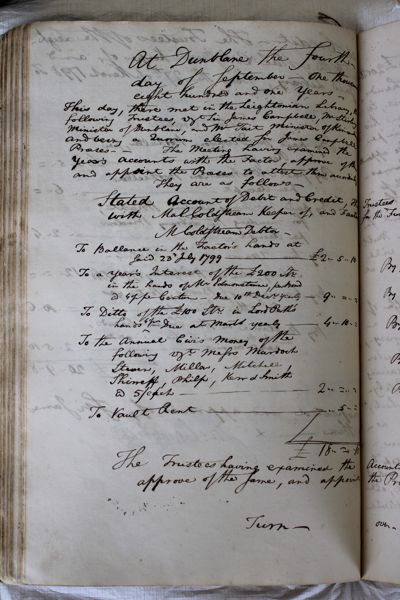 At Dunblane the Fourth
day of September — One thou
eight hundred and one Years
This day, there met in the Leightonian Library
following Trustees, Sir James Campbell, Mr
Minister of Dunblane, and Mr Tait Minister of
and being a Quorum elected Sir James Campbell
Preses — The Meeting having examined the
Years accounts with the Factor, approve of the
and appoint the Preses to attest them accord
They are as follows —
Stated Account of Debit and Credit, The
with Mal Coldstream Keeper of, and Factor
M Coldstream Debtor —
To Ballance in the Factor's hands at
said 23d July 1799 — £2 „ 5 „ 10
To a year's Interest of the £200 St
in the hands of Mr Edmonstone, 
 due 10th Decr yearly — 9 „ „
To Ditto of the £100 Str in Lord
hands due at Marts yearly — 4 „ 10 „
To the Annual Money of the
following Messrs Murdoch
Steven, Millar, Mitchell,
Sherreff, Philp, Kerr & Smith
@ 5/ each — 2 „ „
To Vault Rent — „ 5 „
£ 18 „
The Trustees having examined the
approve of the same, and appoint
Turn —
Trustees
for the
By
By
By
Account
the Pr
over —